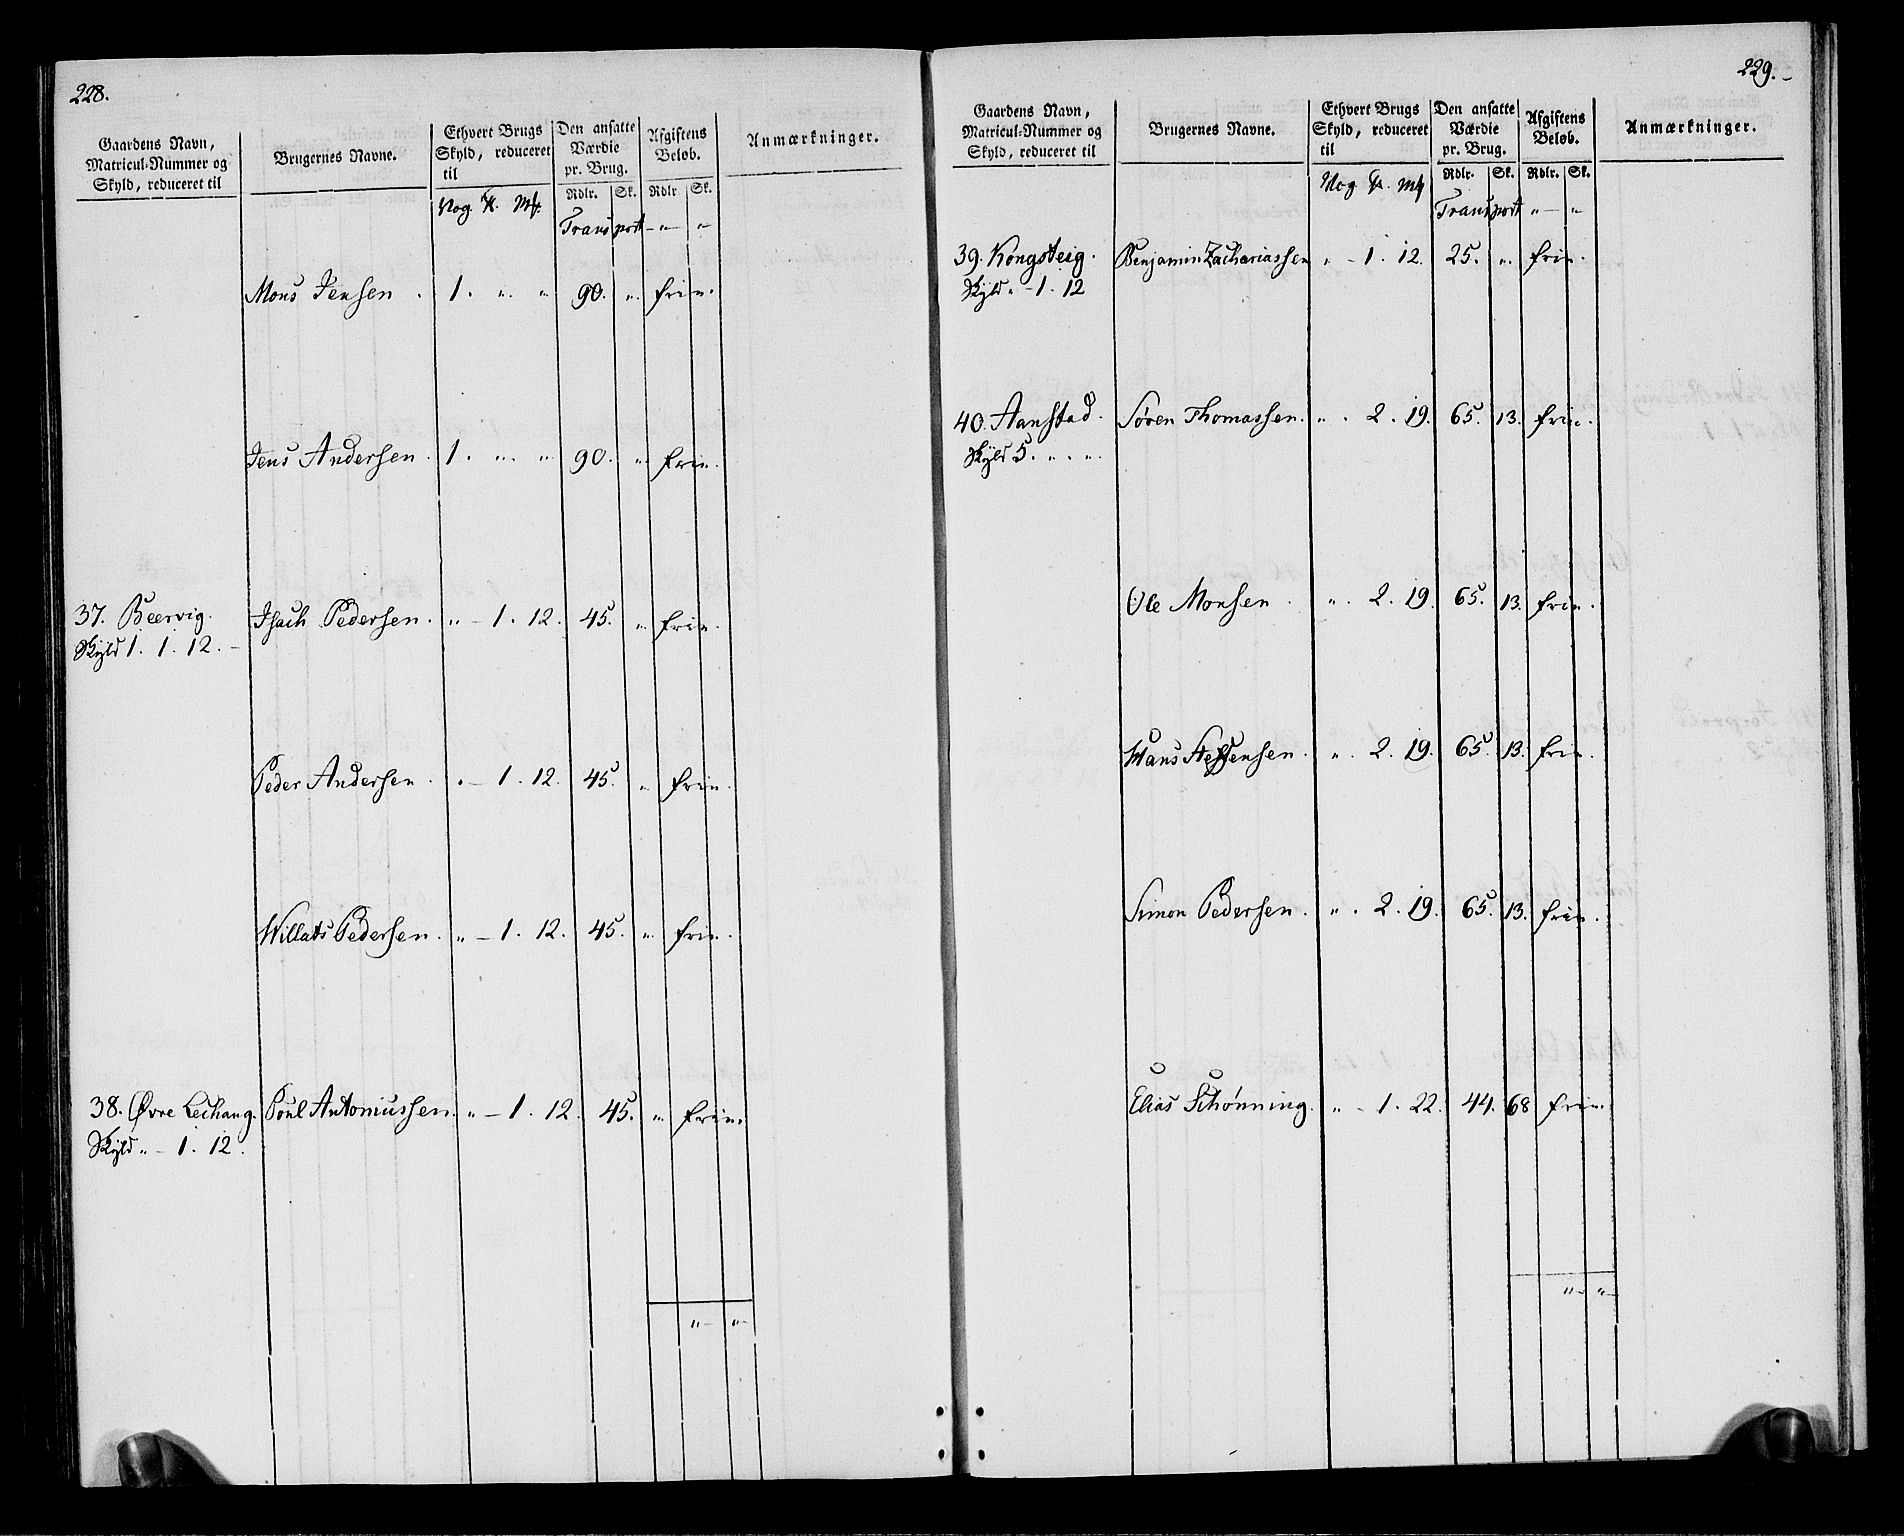 228.
Gaardens Navn, Matricul-Nummer og Skyld, reduceret til
Brugernes Navne.
Ethvert Brugs Skyld, reduceret til
Den ansatte Værdie pr. Brug.
Afgiftens Beløb.
Anmærkninger.
Vog. ℔. Mk.
Rdlr. Sk. Rdlr. Sk.
Transport - „ - „
Mons Jensen . 1. „. „ 90. „. frie.
Jens Andersen . 1. „. „ 90. „ frie.
37. Beervig. Isach Pedersen. „ - 1. 12. 45. „ frie.
Skyld 1. 1. 12. -
Peder Andersen . „ - 1. 12. 45. „ frie.
Willats Pedersen. „ - 1. 12. 45. „ frie.
38. Øvre Lechang. Poul Antoniussen. „ - 1. 12. 45. „ frie.
Skyld „ - 1. 12.
„ - „ -
229. -
Gaardens Navn, Matricul-Nummer og Skyld, reduceret til
Brugernes Navne.
Ethvert Brugs Skyld, reduceret til
Den ansatte Værdie pr. Brug.
Afgiftens Beløb.
Anmærkninger.
Vog. ℔. Mk.
Rdlr. Sk. Rdlr. Sk.
Transport „ - „
39. Kongsteig. Benjamin Zachariassen „ - 1. 12. 25. „. frie.
Skyld „ - 1. 12
40. Aanstad. Søren Thomassen. „ . 2. 19. 65. 13. frie.
Skyld 5. „ . „ .
Ole Monsen . „ . 2. 19. 65. 13. frie.
Hans Steffensen . „ . 2. 19. 65. 13. frie.
Simon Pedersen . „ . 2. 19. 65. 13. frie.
Elias Schønning. „ - 1. 22. 44. 68 frie.
„ - „ -